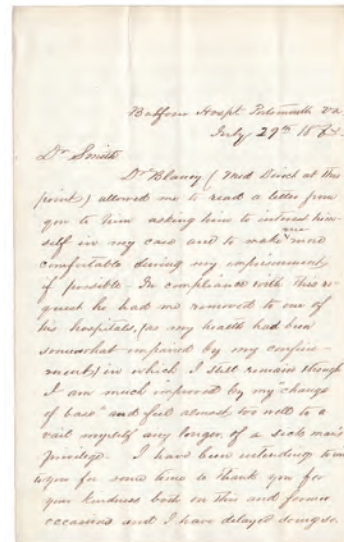 Balfour Hospt. Portsmouth Va.
July 29th 186
Dr Smith
Dr Blaney (Med Direct at this
point) allowed me to read a letter from
you to him asking him to interest him-
self in my case and to make me more
comfortable during my imprisonment
if possible. In compliance with this re-
quest he had me removed to one of
his hospitals, (as my health had been
somewhat impaired by my confine-
ment) in which I still remain though
I am much improved by my "change
of base" and feel almost too well to a
vail myself any longer of a sick man's
privilege. I have been intending to
to you for some time to thank you for
your kindness both on this and former
occasions and I have delayed doing so